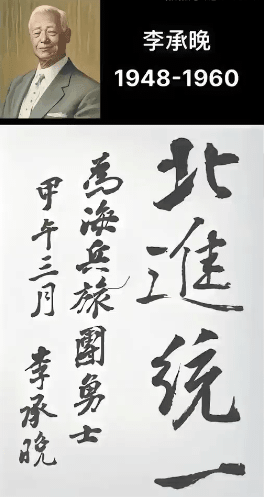 李承晚
1948-1960
北進統一
為海兵旅團勇士
甲午三月 李承晚